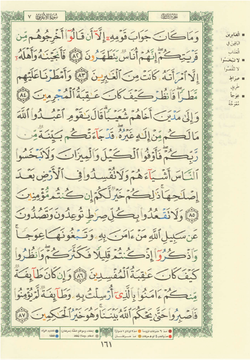 وَمَا كَانَ جَوَابَ قَوْمِهِۦٓ إِلَّآ أَن قَالُوٓا۟ أَخْرِجُوهُم مِّن
قَرْيَتِكُمْ إِنَّهُمْ أُنَاسٌ يَتَطَهَّرُونَ ٨٢ فَأَنجَيْنَٰهُ وَأَهْلَهُۥٓ
إِلَّا ٱمْرَأَتَهُۥ كَانَتْ مِنَ ٱلْغَٰبِرِينَ ٨٣ وَأَمْطَرْنَا عَلَيْهِم
مَّطَرًا فَٱنظُرْ كَيْفَ كَانَ عَٰقِبَةُ ٱلْمُجْرِمِينَ ٨٤
وَإِلَىٰ مَدْيَنَ أَخَاهُمْ شُعَيْبًا قَالَ يَٰقَوْمِ ٱعْبُدُوا۟ ٱللَّهَ
مَا لَكُم مِّنْ إِلَٰهٍ غَيْرُهُۥ قَدْ جَآءَتْكُم بَيِّنَةٌ مِّن
رَّبِّكُمْ فَأَوْفُوا۟ ٱلْكَيْلَ وَٱلْمِيزَانَ وَلَا تَبْخَسُوا۟
ٱلنَّاسَ أَشْيَآءَهُمْ وَلَا تُفْسِدُوا۟ فِى ٱلْأَرْضِ بَعْدَ
إِصْلَٰحِهَا ذَٰلِكُمْ خَيْرٌ لَّكُمْ إِن كُنتُم مُّؤْمِنِينَ
٨٥ وَلَا تَقْعُدُوا۟ بِكُلِّ صِرَٰطٍ تُوعِدُونَ وَتَصُدُّونَ
عَن سَبِيلِ ٱللَّهِ مَنْ ءَامَنَ بِهِۦ وَتَبْغُونَهَا عِوَجًا
وَٱذْكُرُوٓا۟ إِذْ كُنتُمْ قَلِيلًا فَكَثَّرَكُمْ وَٱنظُرُوا۟
كَيْفَ كَانَ عَٰقِبَةُ ٱلْمُفْسِدِينَ ٨٦ وَإِن كَانَ طَآئِفَةٌ
مِّنكُمْ ءَامَنُوا۟ بِٱلَّذِىٓ أُرْسِلْتُ بِهِۦ وَطَآئِفَةٌ لَّمْ يُؤْمِنُوا۟
فَٱصْبِرُوا۟ حَتَّىٰ يَحْكُمَ ٱللَّهُ بَيْنَنَا وَهُوَ خَيْرُ ٱلْحَٰكِمِينَ ٨٧
١٦١